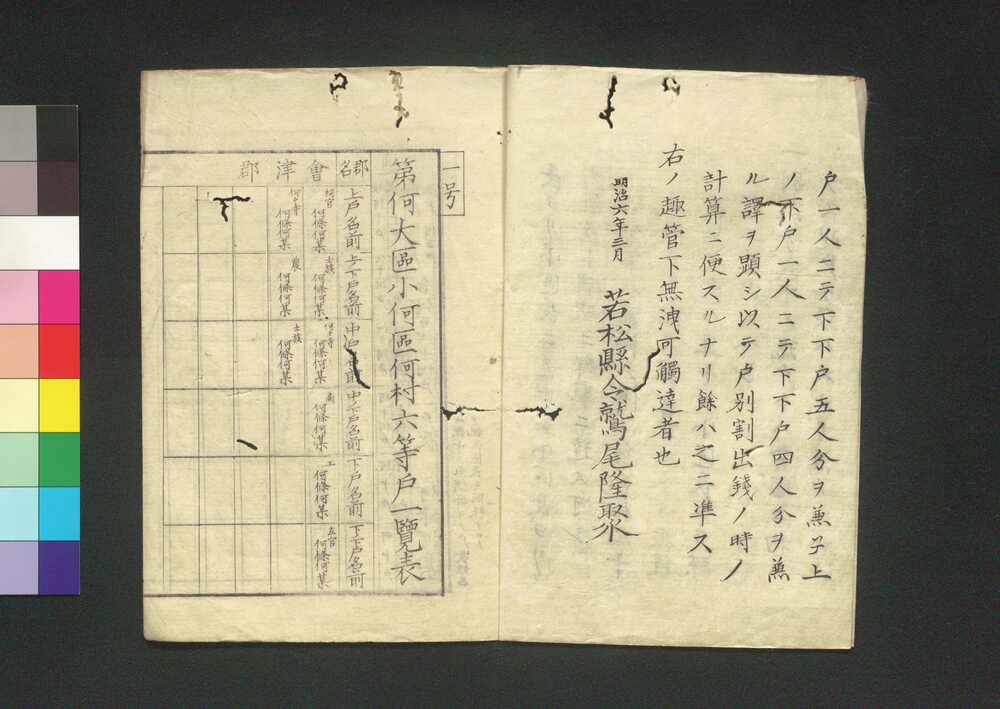 戸一人ニテ下下戸五人分ヲ兼子上
ノ下戸一人ニテ下下戸四人分ヲ兼
ル譯ヲ顕シ以テ戸別割出錢ノ時ノ
計算ニ便スルナリ餘ハ之ニ準ス
右ノ趣管下無洩可觸達者也
明治六年三月
若松縣令鷲尾隆聚
一号
第何大區小何區何村六等戸一覽表
郡名
上戸名前
上下戸名前
中戸名前
中下戸名前
下戸名前
下下戸名前
會津郡
何官
何條何某
士族
何條何某
何々寺
何條何某
商
何條何某
工
何條何某
五官
何條何某
何々寺
何條何某
農
何條何某
士族
何條何某